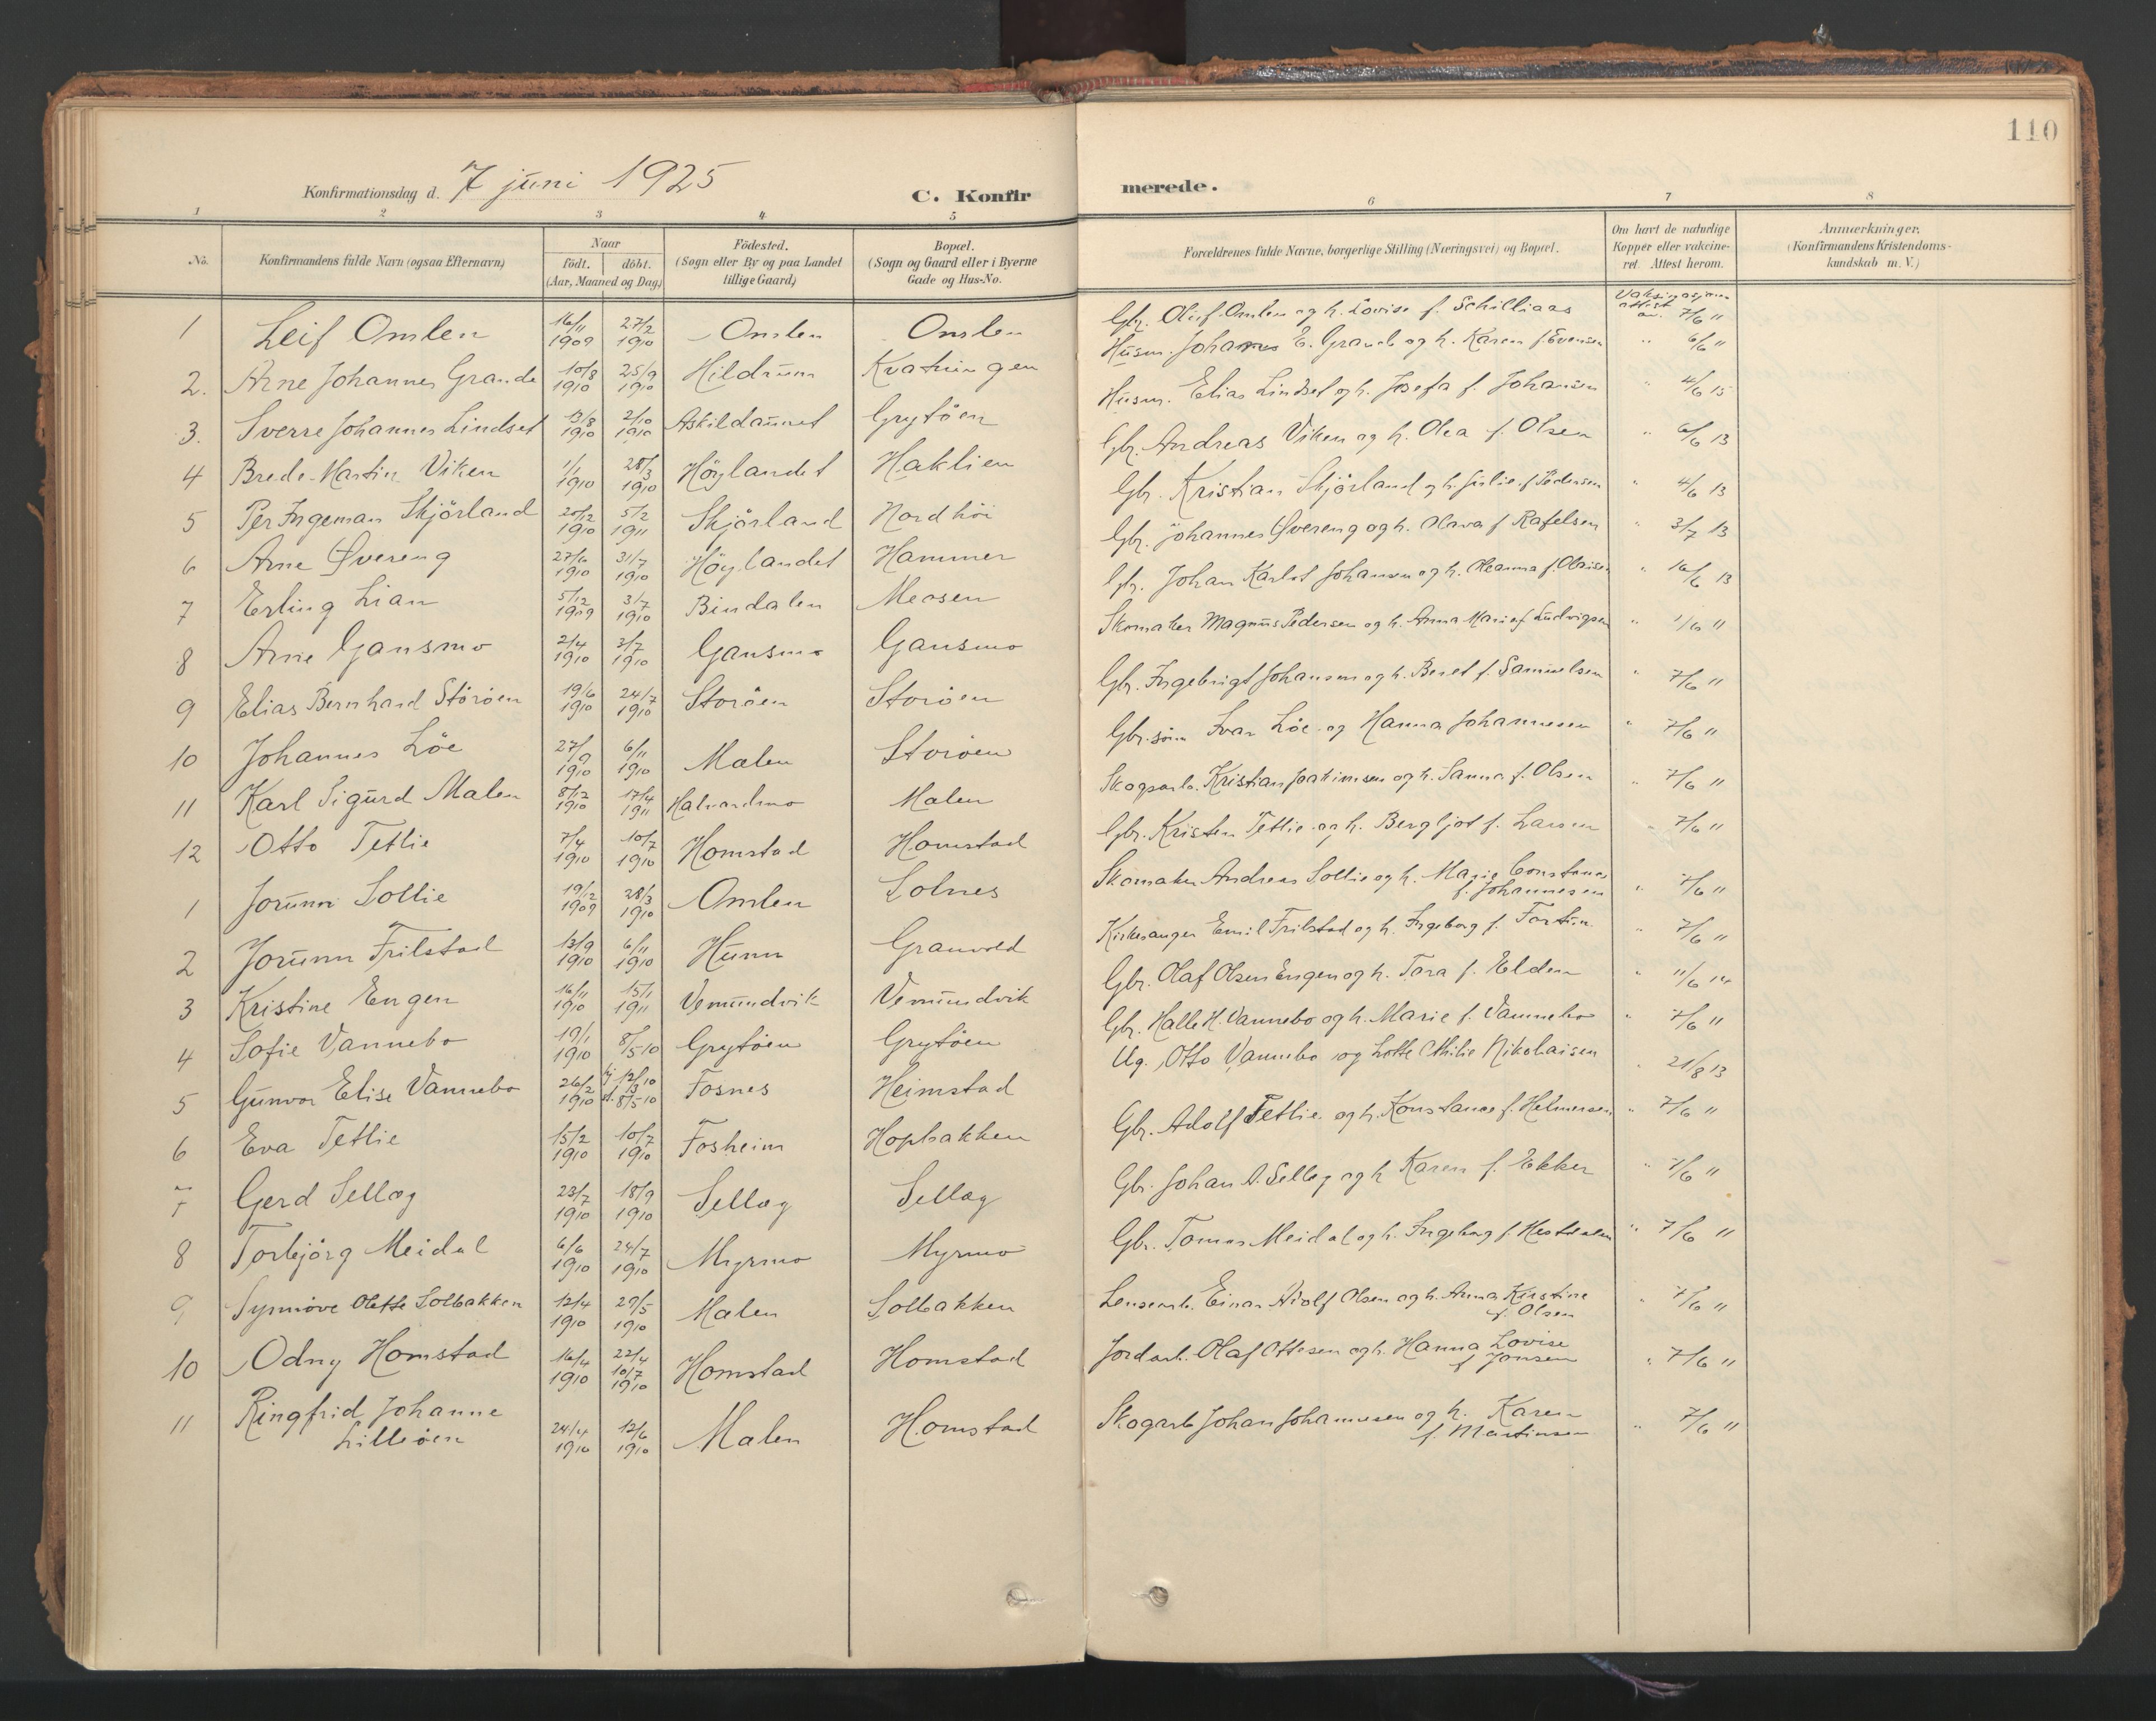 110
Konfirmationsdag d. 7 juni 1925
C. Konfirmerede.
1 2 3 4 5 6 7 8
No. Konfirmandens fulde Navn (ogsaa Efternavn) Naar födt. döbt. (Aar, Maaned og Dag) Födested. (Sogn eller By og paa Landet tillige Gaard) Bopæl. (Sogn og Gaard eller i Byerne Gade og Hus-No. Forældrenes fulde Navne, borgerlige Stilling (Næringsvei) og Bopæl. Om havt de naturlige Kopper eller vakcineret. Attest herom. Anmærkninger. (Konfirmandens Kristendomskundskab m. V.)
1 Leif Omlen 16/11 1909 27/2 1910 Omlen Omlen Gbr. Oluf Omlen og h. Lovise f. Schilliaas Vaksinasjons attest av. 7/6 "
2. Arne Johannes Grande 10/8 1910 25/9 1910 Hildrum Kvatningen Husm. Johannes E. Grande og h. Karen f. Evensen " 6/6 "
3. Sverre Johannes Lindset 13/8 1910 2/10 1910 Askildaunet Grytöen Husm. Elias Lindset og h. Josefa f. Johansen " 4/6 15
4 Brede Martin Viken 1/1 1910 28/3 1910 Höylandet Haklien Gbr. Andreas Viken og h. Olea f. Olsen " 6/6 13
5 Per Ingeman Skjörland 20/12 1910 5/2 1911 Skjörland Nordhöi Gbr. Kristian Skjörland og h. Julie f. Pedersen " 4/6 13
6 Arne Øvereng 27/6 1910 31/7 1910 Höylandet Hammer Gbr. Johannes Øvereng og h. Olava f. Rafelsen " 3/7 13
7 Erling Lian 5/12 1909 3/7 1910 Bindalen Meosen Gbr. Johan Karlot Johansen og h. Oleanna f. Olaisen " 16/6 13
8 Arne Gansmo 2/4 1910 3/7 1910 Gansmo Gansmo Skomaker Magnus Pedersen og h. Anna Marie f. Ludvigsen " 1/6 "
9 Elias Bernhard Störöen 19/6 1910 24/7 1910 Storöen Storöen Gbr. Ingebrigt Johansen og h. Beret f. Samuelsen " 7/6 "
10 Johannes Löe 27/9 1910 6/11 1910 Malen Storöen Gbr.sön Ivar Löe og Hanna Johannesen " 7/6 "
11 Karl Sigurd Malen 8/12 1910 17/4 1911 Halvardmo Malen Skogsarb. Kristian Joakimsen og h. Sanna f. Olsen " 7/6 "
12 Otto Tetlie 7/4 1910 10/7 1910 Homstad Homstad Gbr. Kristen Tetlie og h. Bergljot f. Larsen " 7/6 "
1 Jorunn Sollie 19/12 1909 28/3 1910 Omlen Solnes Skomaker Andreas Sollie og h. Marie Constanse f. Johannesen " 7/6 "
2 Jorunn Frilstad 13/9 1910 6/11 1910 Hunn Granvold Kirkesanger Emil Frilstad og h. Ingeborg f. Fortun " 7/6 "
3 Kristine Engen 16/11 1910 15/1 1911 Vemundvik Vemundvik Gbr. Olaf Olsen Engen og h. Tora f. Elden " 11/6 14
4 Sofie Vannebo 19/1 1910 8/5 10 Grytöen Grytöen Gbr. Halle H. Vannebo og h. Marie f. Vannebo " 7/6 "
5 Gunvor Elise Vannebo 26/2 1910 hj 12/3 10 st. 8/5 10 Fosnes Heimstad Ug. Otto Vannebo og Lotte Othilie Nikolaisen " 21/8 13
6 Eva Tetlie 15/2 1910 10/7 1910 Fosheim Hopbakken Gbr. Adolf Tetlie og h. Konstanse f. Helmersen " 7/6 "
7 Gerd Selløg 23/7 1910 18/9 1910 Sellæg Sellæg Gbr. Johan A. Selløg og h Karen f. Ekker " 7/6 "
8 Torbjörg Meidal 6/6 1910 24/7 1910 Myrmo Myrmo Gbr. Tomas Meidal og h. Ingeborg f. Hestdalen " 7/6 "
9 Synnöve Olette Solbakken 12/4 1910 29/5 1910 Malen Solbakken Lensearb. Einar Adolf Olsen og h. Anna Kirstine f. Olsen " 7/6 "
10 Odny Homstad 16/4 1910 22/4 10/7 1910 Homstad Homstad Jordarb. Olaf Ottesen og h. Hanna Lovise f Jonsen " 7/6 "
11 Ringfrid Johanne Lilleöen 24/4 1910 12/6 1910 Malen Homstad Skogarb Johan Johannesen og h. Karen f. Martinsen " 7/6 "